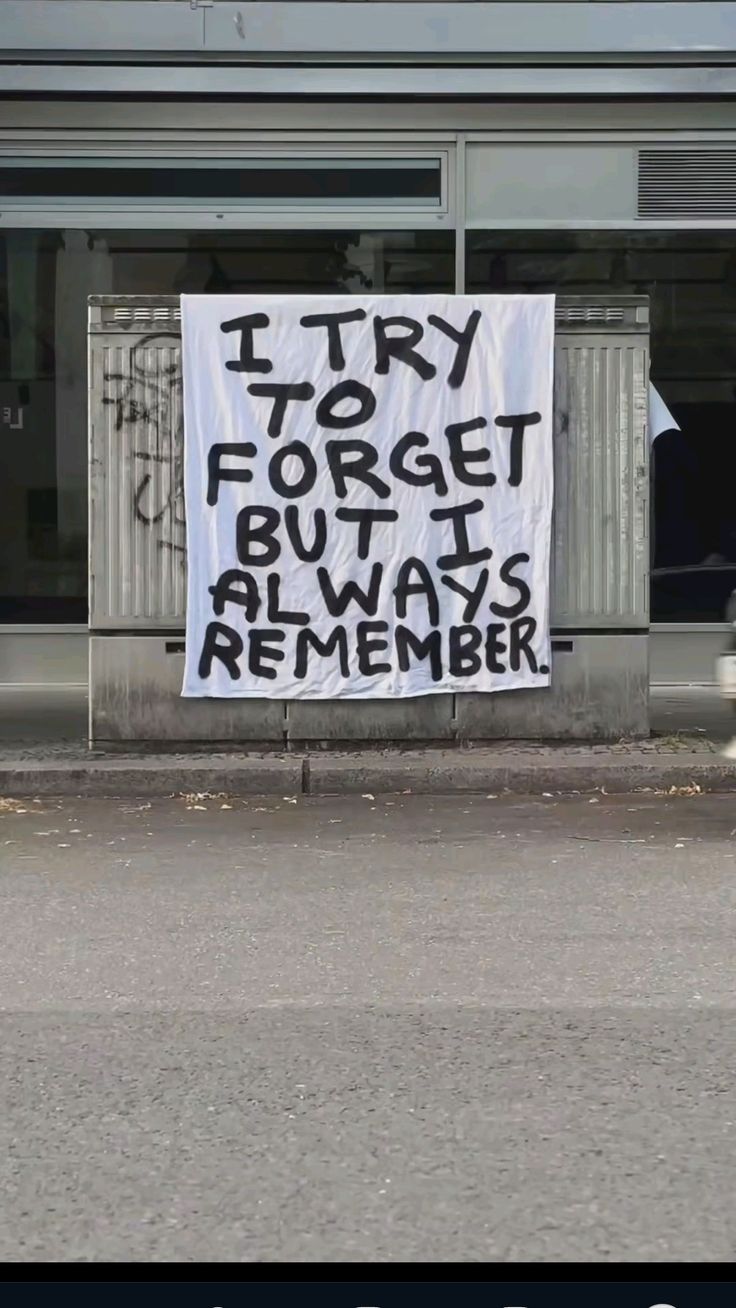 I TRY
TO
FORGET
BUT I
ALWAYS
REMEMBER.